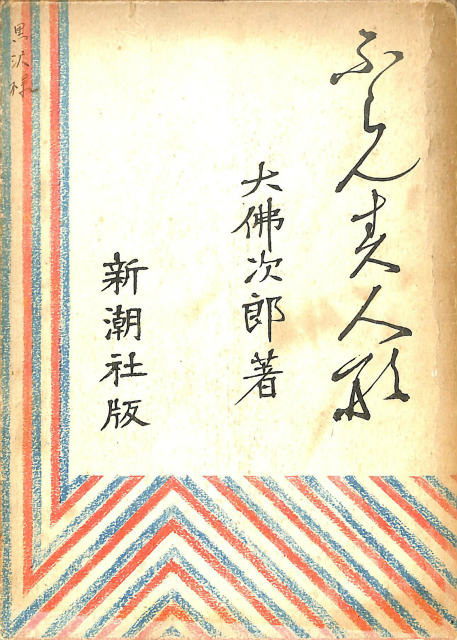 ふらんす人形
大佛次郎著
新潮社版
黒沢様